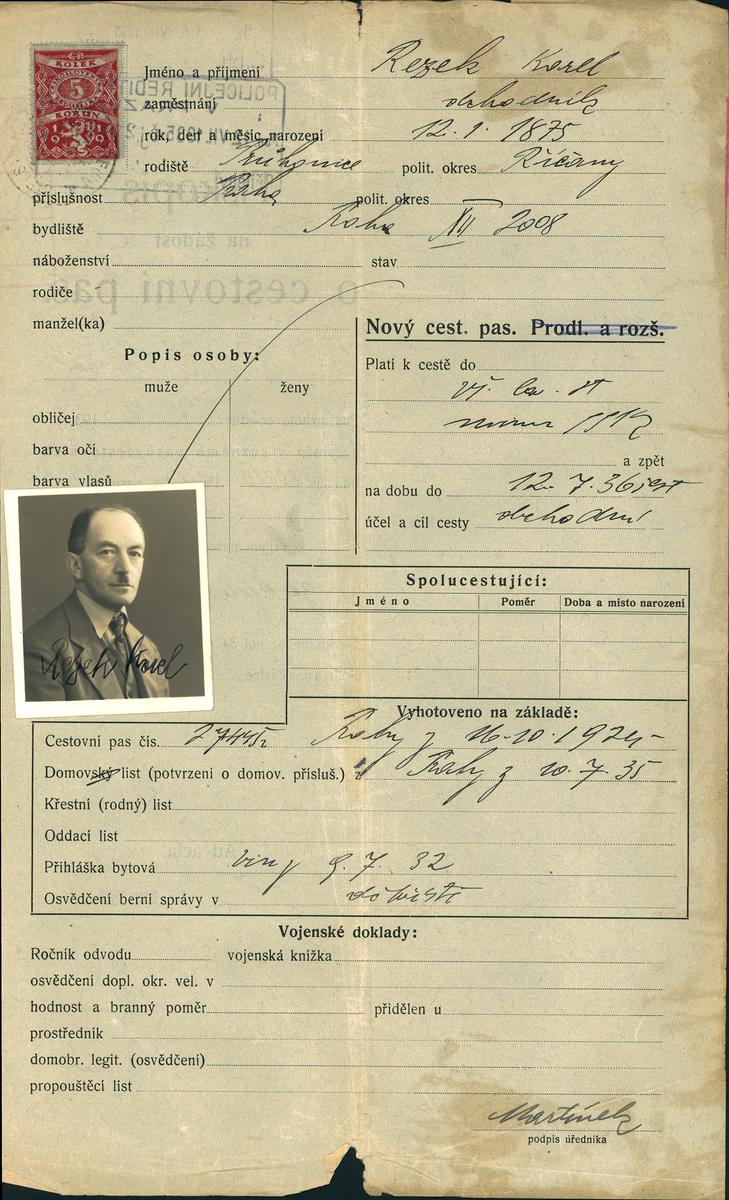 KOLEK
5
KORUN
Jméno a příjmení Rezek Karel
zaměstnání obchodník
rok, den a měsíc narození 12. 1. 1875
rodiště Průhonice polit. okres Říčany
příslušnost Praha polit. okres
bydliště Praha XII 2008
náboženství stav
rodiče
manžel(ka)
Popis osoby:
muže ženy
obličej
barva očí
barva vlasů
Rezek Karel
Nový cest. pas. Prodl. a rozš.
Platí k cestě do
a zpět
na dobu do 12. 7. 36
účel a cíl cesty obchodní
Spolucestující:
Jméno Poměr Doba a místo narození
Vyhotoveno na základě:
Cestovní pas čís. Prahy z 16. 10. 192
Domovský list (potvrzení o domov. přísluš.) z Prahy z 10. 7. 35
Křestní (rodný) list
Oddací list
Přihláška bytová 9. 7. 32
Osvědčení berní správy v
Vojenské doklady:
Ročník odvodu vojenská knížka
osvědčení dopl. okr. vel. v
hodnost a branný poměr přidělen u
prostředník
domobr. legit. (osvědčení)
propouštěcí list
Martínek
podpis úředníka